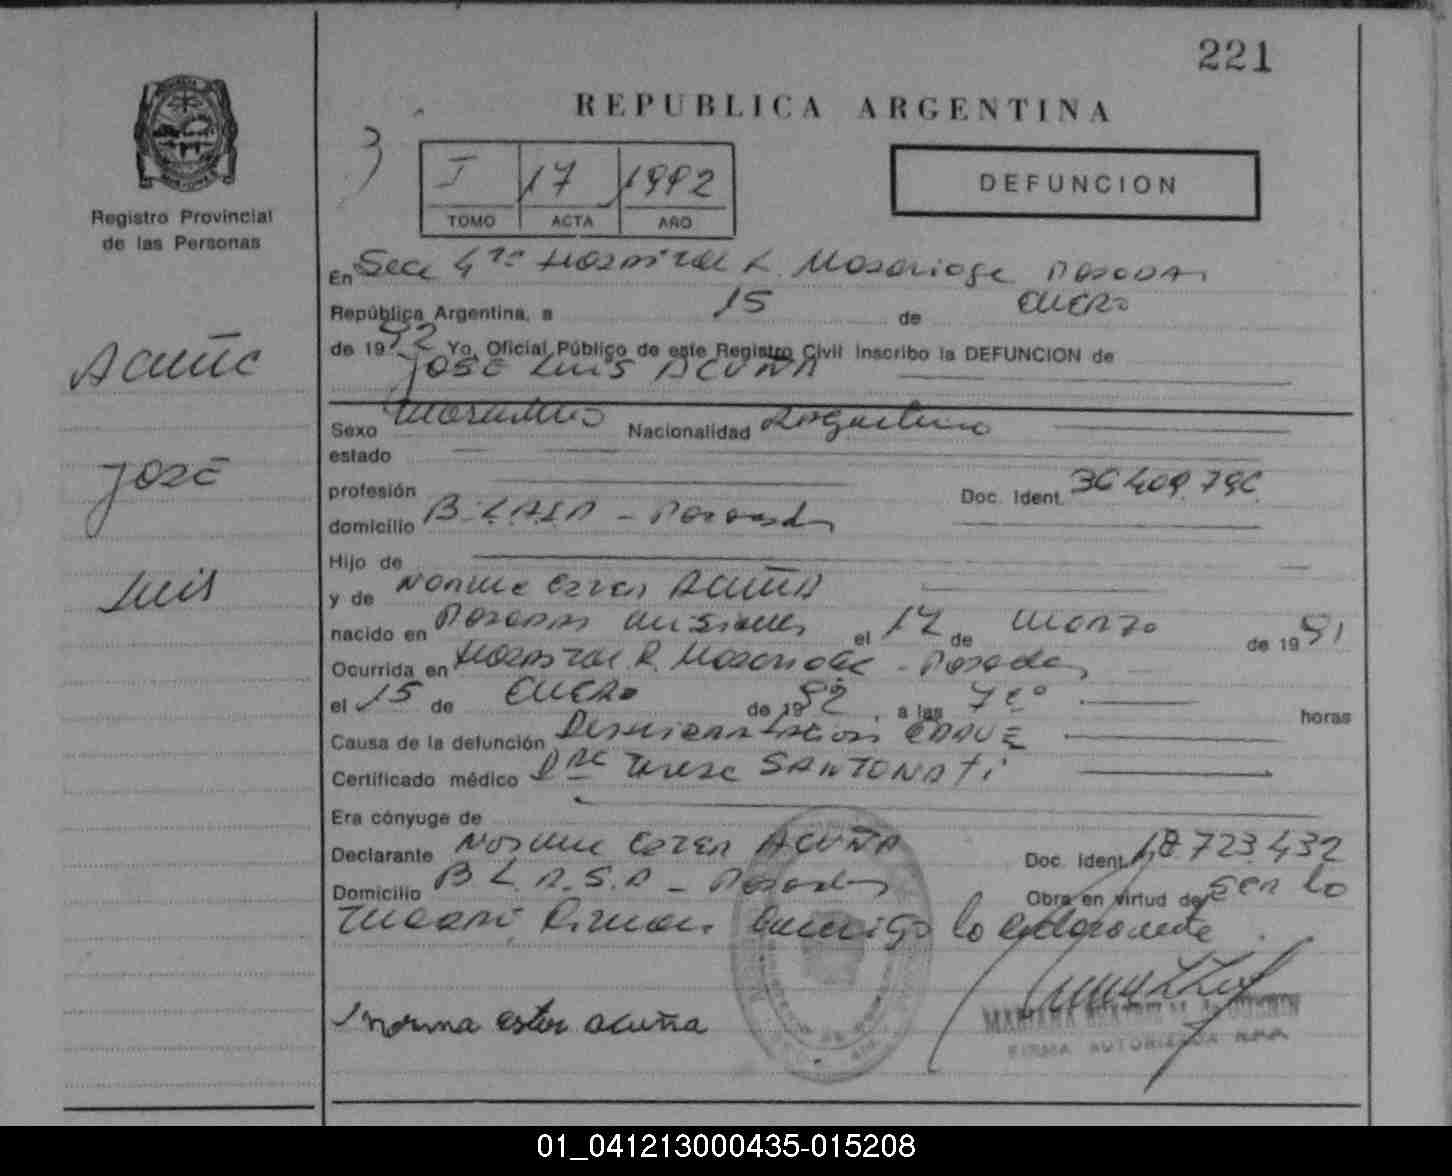 221
REPUBLICA ARGENTINA
I 17 1992
TOMO ACTA AÑO
DEFUNCION
Registro Provincial
de las Personas
Acuña
José
Luis
En Secc 4ta Hospital R. Madariaga Posadas
República Argentina, a 15 de Enero
de 1992 Yo, Oficial Público de este Registro Civil inscribo la DEFUNCION de
JOSÉ LUIS ACUÑA
Sexo Masculino Nacionalidad Argentino
estado
profesión Doc. Ident.
domicilio Posadas
Hijo de
y de Norma Ester ACUÑA
nacido en Posadas Misiones el 17 de Marzo de 1991
Ocurrida en Hospital R. Madariaga - Posadas
el 15 de Enero de 1992, a las horas
Causa de la defunción
Certificado médico Dra Teresa SANTONATI
Era cónyuge de
Declarante Norma Ester ACUÑA Doc. Ident. 18.723.432
Domicilio Posadas Obra en virtud de ser la
madre. Firman conmigo la declarante
norma ester acuña
FIRMA AUTORIZADA
01_041213000435-015208